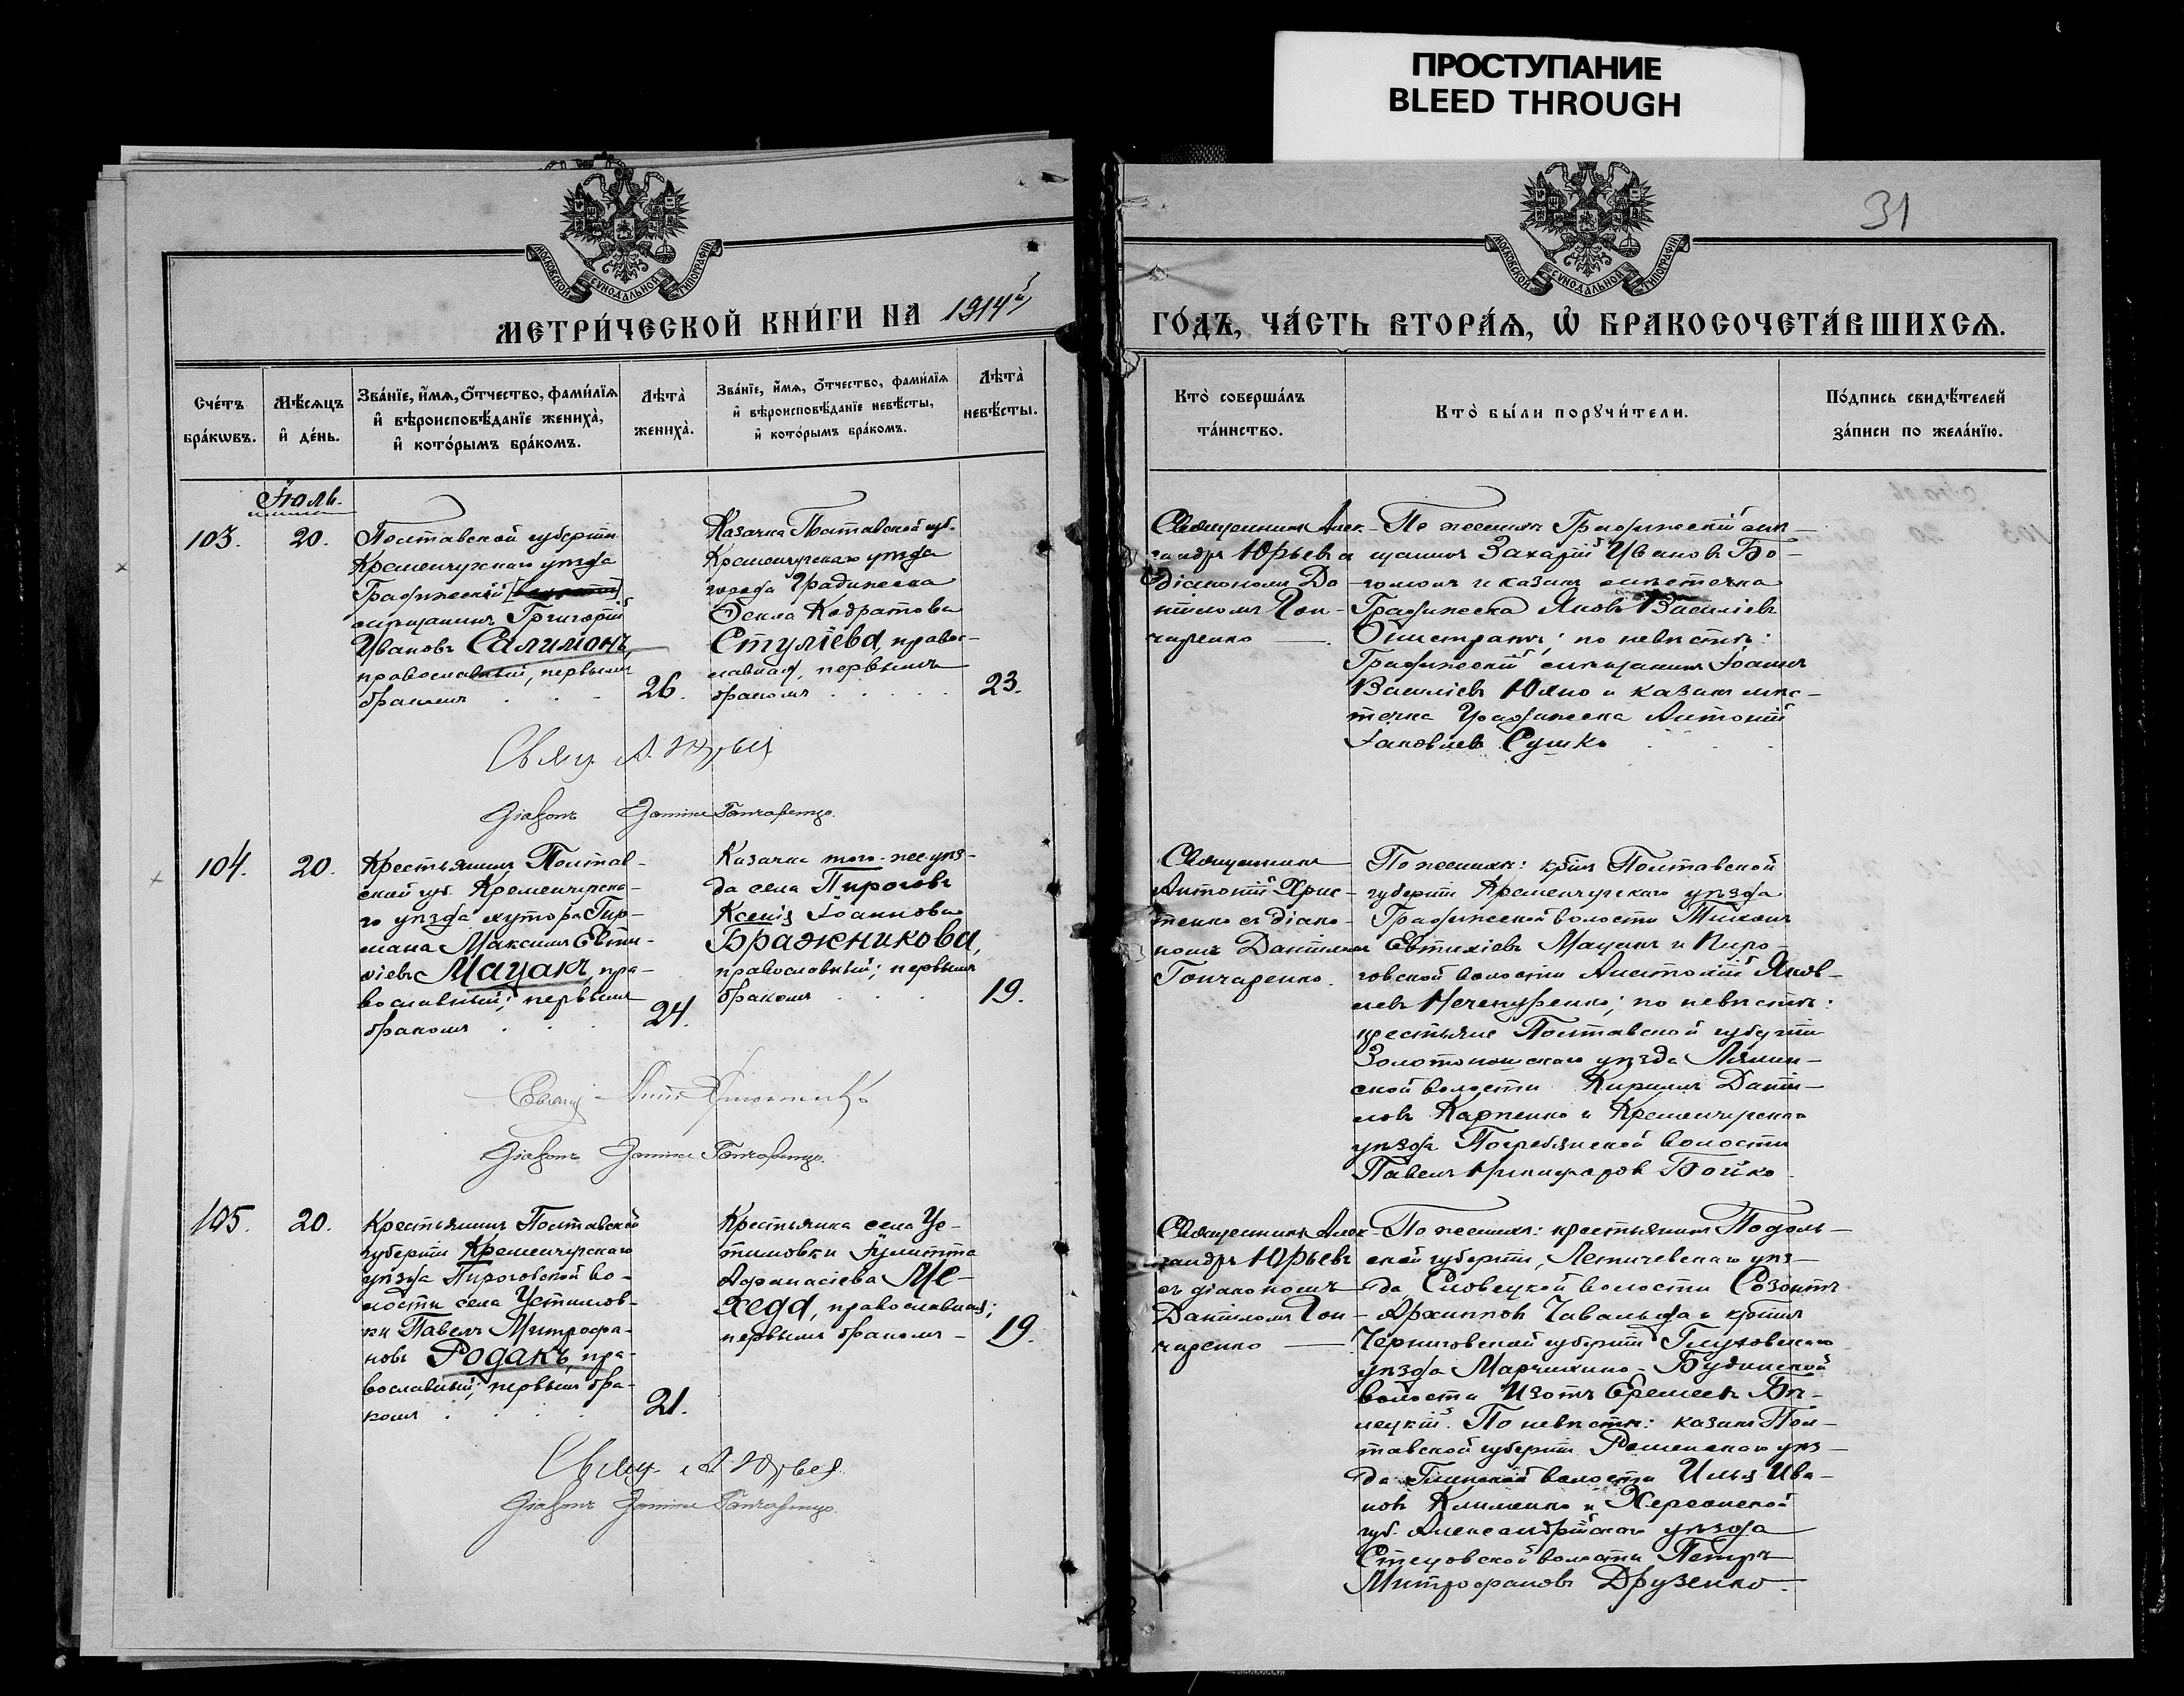 ПРОСТУПАНИЕ
BLEED THROUGH
31
МОСКОВСКОЙ СѴНОДАЛЬНОЙ ТИПОГРАФІИ
МОСКОВСКОЙ СѴНОДАЛЬНОЙ ТИПОГРАФІИ
МЕТРИ́ЧЕСКОЙ КНИ́ГИ НА 1914й
ГО́ДЪ, ЧА́СТЬ ВТОРА́Ѧ, Ѡ҆ БРАКОСОЧЕТА́ВШИХСѦ.
Сче́тъ
бра́кѡвъ.
Мѣ́сѧцъ
и҆ де́нь.
Зва́нїе, и҆́мѧ, ѻ҆́тчество, фами́лїѧ
и҆ вѣроисповѣ́данїе жениха̀,
и҆ кото́рымъ бра́комъ.
Лѣ́та̀
жениха̀.
Зва́нїе, и҆́мѧ, ѻ҆́тчество, фами́лїѧ
и҆ вѣроисповѣ́данїе невѣ́сты,
и҆ кото́рымъ бра́комъ.
Лѣ́та̀
невѣ́сты.
Кто̀ соверша́лъ
та́инство.
Кто̀ бы́ли порꙋчи́тели.
По́дпись свидѣ́телей
за́писи по жела́нїю.
Іюль.
103.
20.
Полтавской губерніи
Кременчугскаго уѣзда
Градижскій
мѣщанинъ Григорій
Ивановъ Салимонъ,
православный, первымъ
бракомъ
26.
Казачка Полтавской губ.
Кременчугскаго уѣзда
города Градижска
Ѳекла Кодратова
Стулієва, правос-
лавная, первымъ
бракомъ
23.
Священникъ Алек-
сандръ Юрьевъ
діакономъ Да-
ніиломъ Гон-
чаренко
По женихѣ Градижскій мѣ-
щанинъ Захарій Ивановъ Бо-
гомолъ и казакъ мѣстечка
Градижска Яковъ Василіевъ
по невѣстѣ:
Градижскій мѣщанинъ Іоаннъ
Василіевъ Юхно и казакъ мѣс-
течка Градижска Антоній
Іаковлевъ Сушко
Свящ. А. Юрьев
Діаконъ Даніилъ Гончаренко.
104.
20.
Крестьянинъ Полтав-
ской губ. Кременчугска-
го уѣзда хутора Гир-
мана Максимъ Евти-
хіевъ Мацакъ, пра-
вославный; первымъ
бракомъ
24.
Казачка того-же уѣз-
да села Пироговъ
Ксенія Іоаннова
Бражникова,
православный; первымъ
бракомъ
19.
Священникъ
Антоній Хрис-
тенко съ діако-
номъ Даніиломъ
Гончаренко.
По женихѣ: кр-нъ Полтавской
губерніи Кременчугскаго уѣзда
Градижской волости Тихонъ
Евтихіевъ Мацакъ и Пиро-
говской волости Анатолій Яков-
левъ Нечепуренко; по невѣстѣ:
крестьяне Полтавской губерніи
Золотоношскаго уѣзда Лялин-
ской волости Кириллъ Даніи-
ловъ Карпенко и Кременчугскаго
уѣзда Погребянской волости
Павелъ Никифоровъ Бойко.
Свящ. Ант. Христенко
Діаконъ Даніилъ Гончаренко.
105.
20.
Крестьянинъ Полтавской
губерніи Кременчугскаго
уѣзда Пироговской во-
лости села Устимов-
ки Павелъ Митрофа-
новъ Родакъ, пра-
вославный; первымъ бра-
комъ
21.
Крестьянка села Ус-
тимовки Іулитта
Афанасіева Ме-
хеда, православная;
первымъ бракомъ
19.
Священникъ Алек-
сандръ Юрьевъ
съ діакономъ
Даніиломъ Гон-
чаренко
По женихѣ: крестьянинъ Подоль-
ской губерніи, Летичевскаго уѣз-
да, Сновецкой волости Созонтъ
Архиповъ Чавальда и кр-нинъ
Черниговской губерніи Глуховскаго
уѣзда Марчихино-Будинской
волости Изотъ Еремеевъ Бѣ-
лецкій. По невѣстѣ: казакъ Пол-
тавской губерніи Роменскаго уѣз-
да Глинской волости Илья Ива-
новъ Клименко и Херсонской
губ. Александрійскаго уѣзда
Стецовской волости Петръ
Митрофановъ Друзенко.
Свящ. А. Юрьев
Діаконъ Даніилъ Гончаренко.